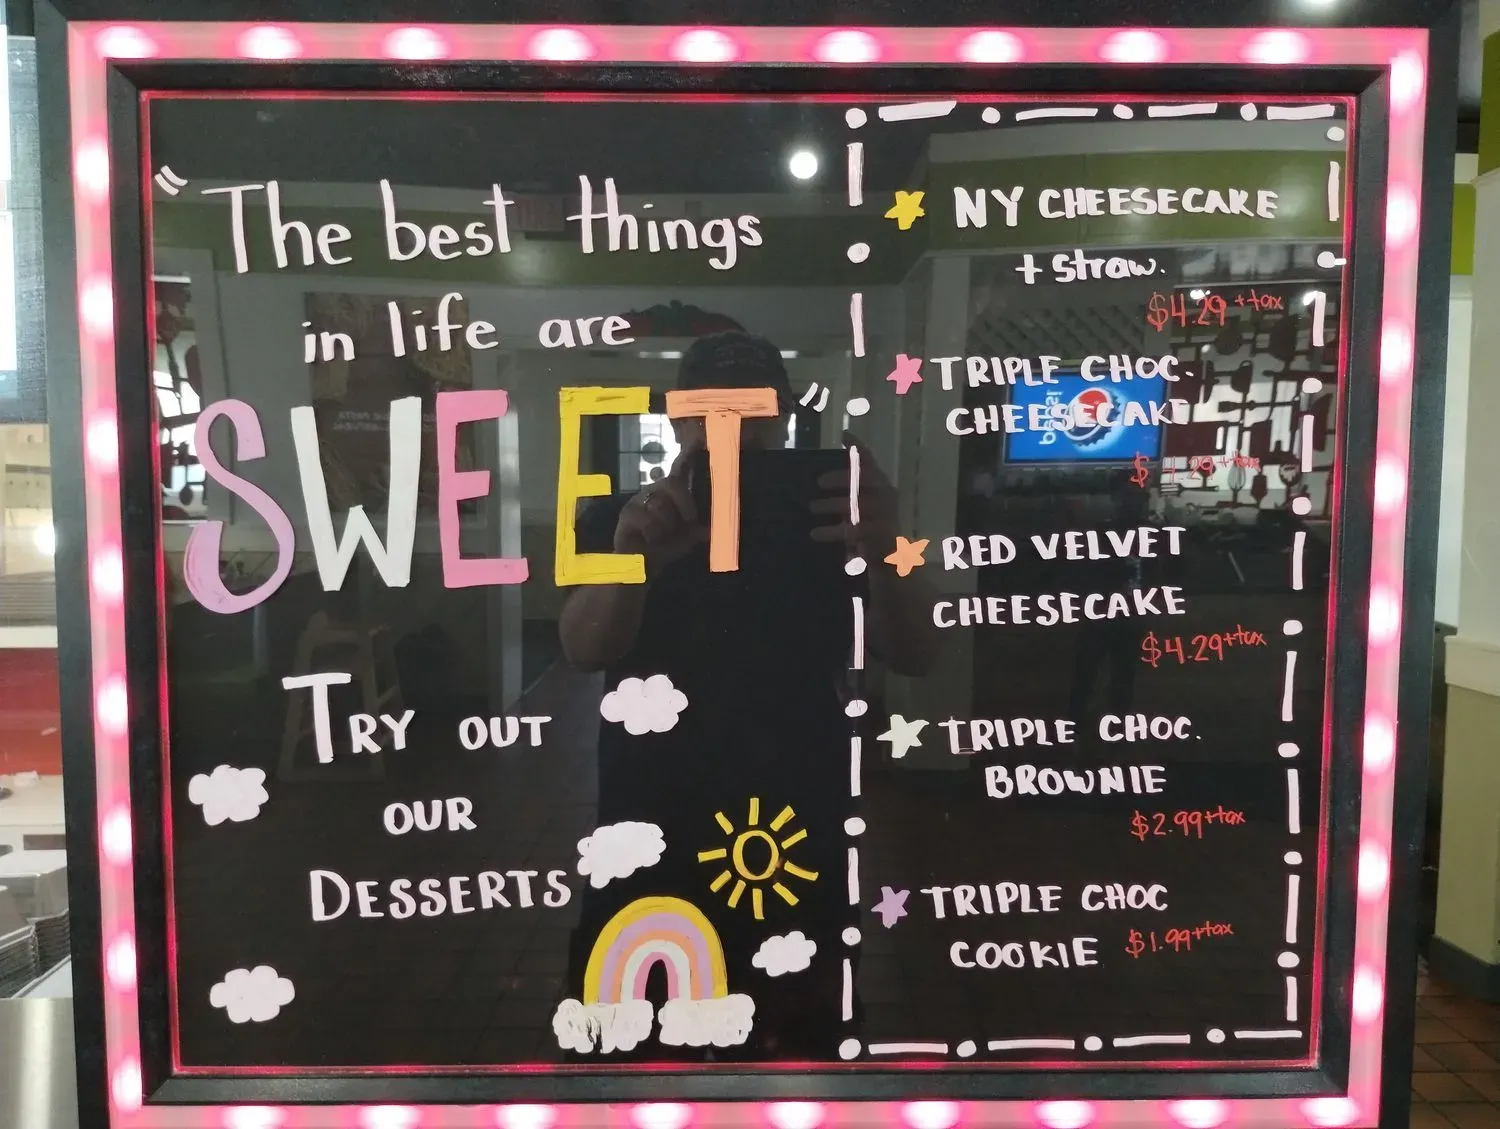 "The best things
in life are
SWEET"
TRY OUT
OUR
DESSERTS
NY CHEESECAKE
+ straw.
$4.29 ++tax
TRIPLE CHOC.
CHEESECAKE
$4.29 ++tax
RED VELVET
CHEESECAKE
$4.29 ++tax
TRIPLE CHOC.
BROWNIE
$2.99 ++tax
TRIPLE CHOC
COOKIE $1.99 ++tax
pepsi